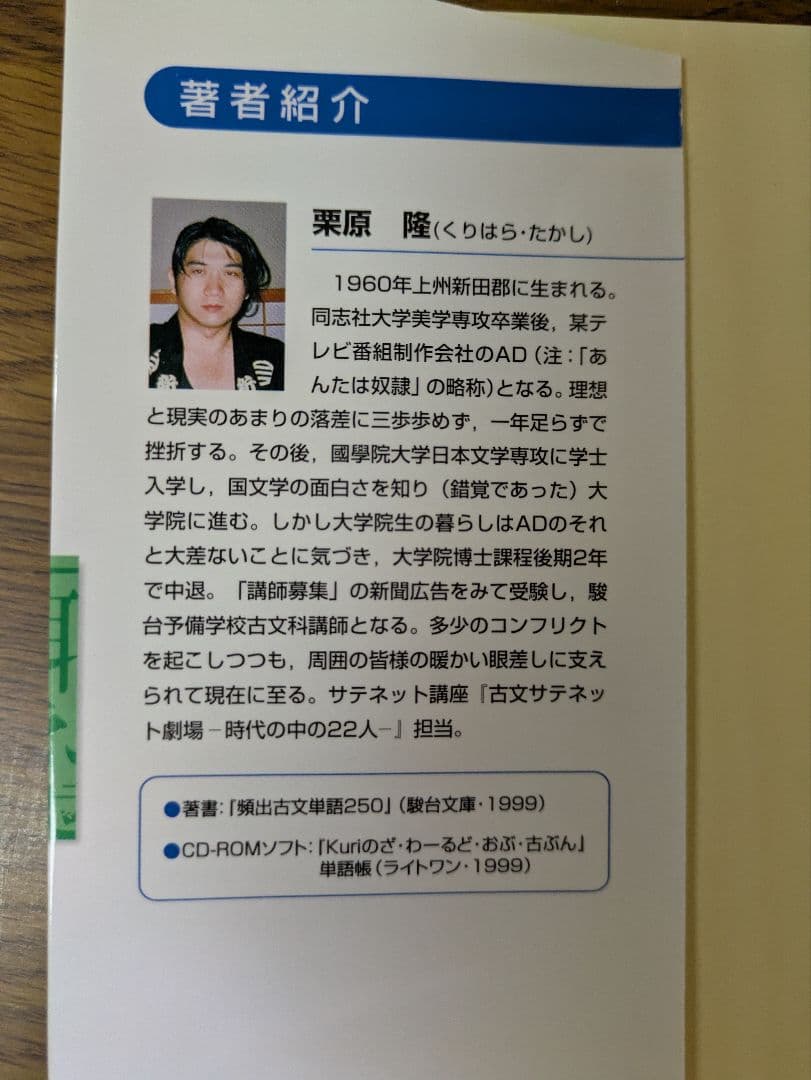 著者紹介
栗原　隆(くりはら・たかし)
1960年上州新田郡に生まれる。
同志社大学美学専攻卒業後，某テ
レビ番組制作会社のAD（注：「あ
んたは奴隷」の略称)となる。理想
と現実のあまりの落差に三歩歩めず，一年足らずで
挫折する。その後，國學院大学日本文学専攻に学士
入学し，国文学の面白さを知り（錯覚であった）大
学院に進む。しかし大学院生の暮らしはADのそれ
と大差ないことに気づき，大学院博士課程後期2年
で中退。「講師募集」の新聞広告をみて受験し，駿
台予備学校古文科講師となる。多少のコンフリクト
を起こしつつも，周囲の皆様の暖かい眼差しに支え
られて現在に至る。サテネット講座『古文サテネッ
ト劇場－時代の中の22人－』担当。
●著書：「頻出古文単語250」（駿台文庫・1999）
●CD-ROMソフト：「Kuriのざ・わーるど・おぶ・古ぶん」
単語帳（ライトワン・1999）